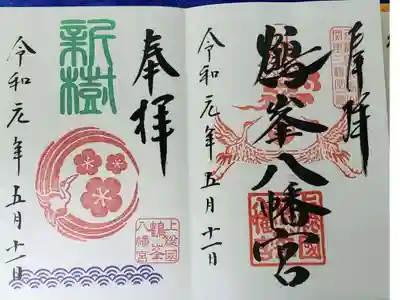 奉拝
鶴峯八幡宮
令和元年五月十一日
上総國
鶴峯
八幡宮
奉拝
新樹
令和元年五月十一日
上総國
鶴峯
八幡宮